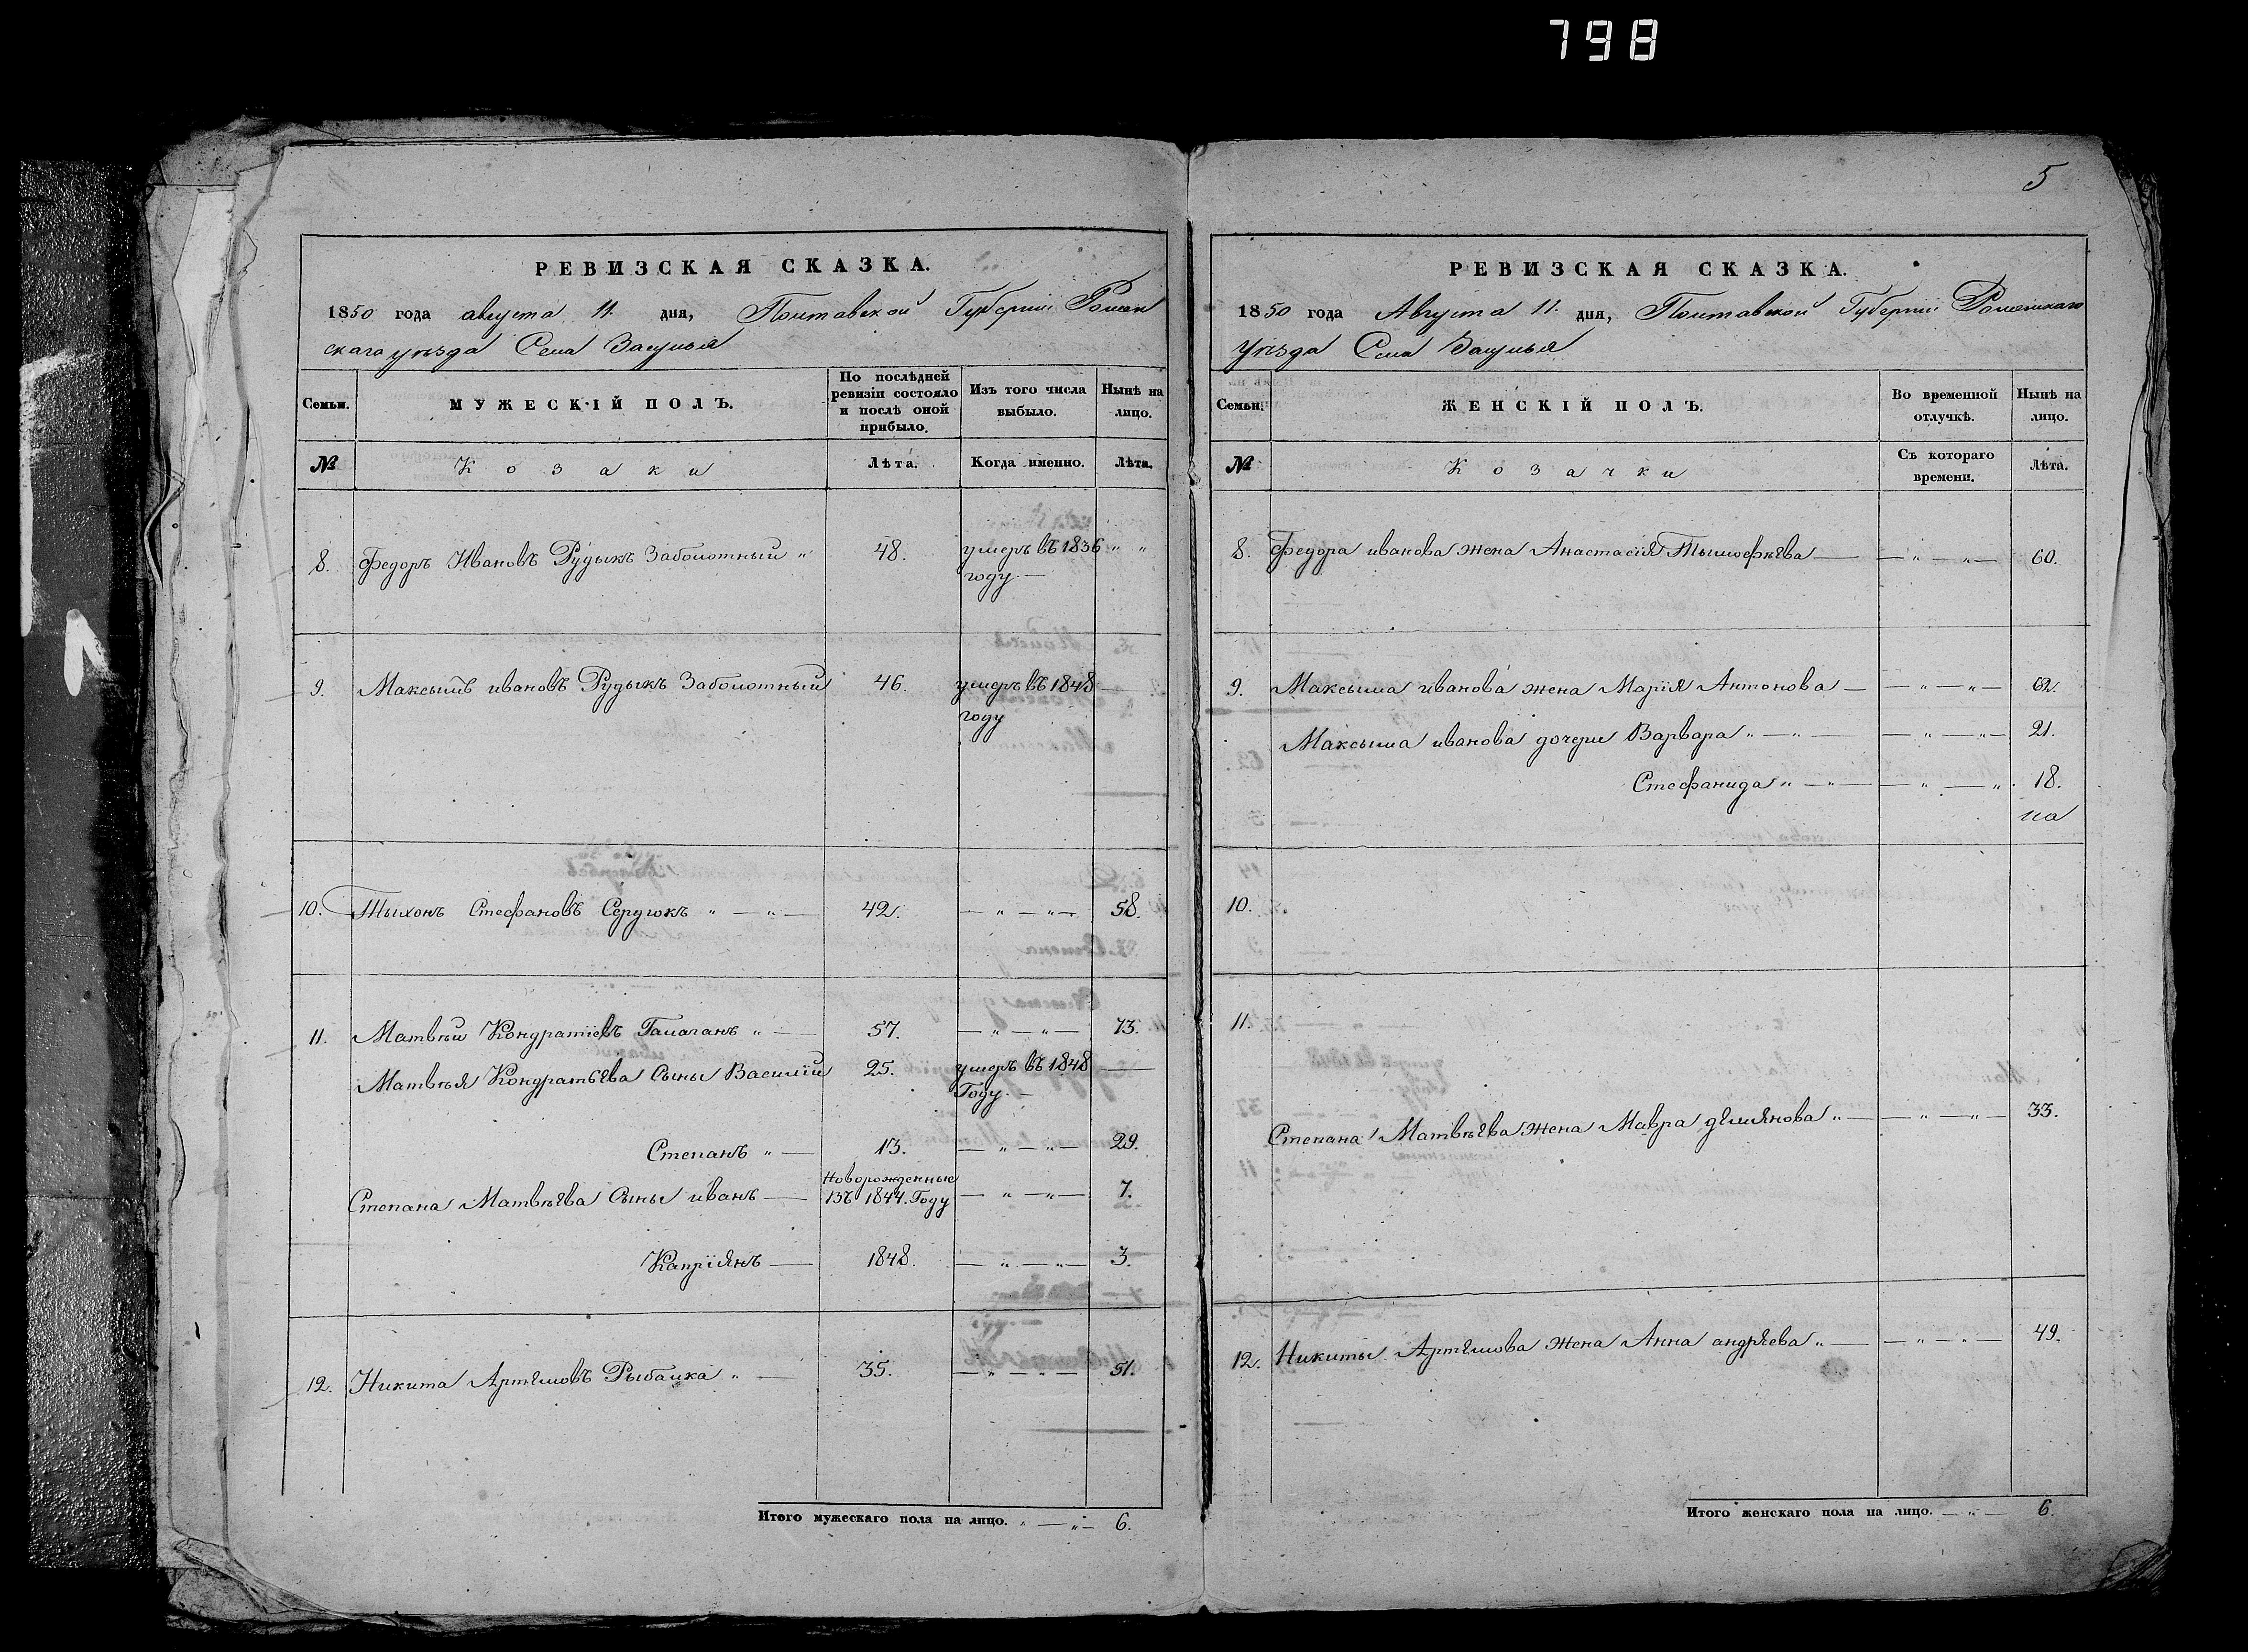 798
РЕВИЗСКАЯ СКАЗКА.
1850 года августа 11. дня, Полтавской Губерніи Ромен
скаго уѣзда Села Засулья
Семьи.
МУЖЕСКІЙ ПОЛЪ.
По послѣдней ревизіи состояло и послѣ оной прибыло.
Изъ того числа выбыло.
Нынѣ на лицо.
№
Козаки
Лѣта.
Когда именно.
Лѣта.
8. Федоръ Ивановъ Рудыкъ Заболотный „ 48. умеръ въ 1836 „ „
году. —
9. Максымъ ивановъ Рудыкъ Заболотный 46. умеръ въ 1848 —
году
10. Тыхонъ Стефановъ Сердюкъ „ — „ — 42. — „ — „ — 58.
11. Матвѣй Кондратіевъ Галаганъ „ — 57. — „ — „ — 73.
Матвѣя Кондратьева Сыны Василій 25. умеръ въ 1848 —
Году. —
Степанъ „ — 13. — „ — „ — 29.
Новорожденные
Степана Матвѣева Сыны иванъ — въ 1844. Году — „ — „ — 7.
Капріянъ — 1848. — „ — „ — 3.
12. Никита Артемовъ Рыбалка „ — 35. — „ — „ — 51.
Итого мужескаго пола на лицо. „ — „ — 6.
5
РЕВИЗСКАЯ СКАЗКА.
1850 года Августа 11. дня, Полтавской Губерніи Роменскаго
Уѣзда Села Засулья
Семьи.
ЖЕНСКІЙ ПОЛЪ.
Во временной отлучкѣ.
Нынѣ на лицо.
№
Козачки
Съ котораго времени.
Лѣта.
8. Федора иванова жена Анастасія Тымофѣева — — „ — „ — 60.
9. Максыма иванова жена Марія Антонова — — „ — „ — 62.
Максыма иванова дочери Варвара „ — „ — — „ — „ — 21.
Стефанида „ — „ — — „ — „ 18.
10.
11.
Степана Матвѣева жена Мавра демянова „ — — „ — „ — 33.
12. Никиты Артемова жена Анна андрѣева „ — — „ — „ — 49.
Итого женскаго пола на лицо. — „ — 6.